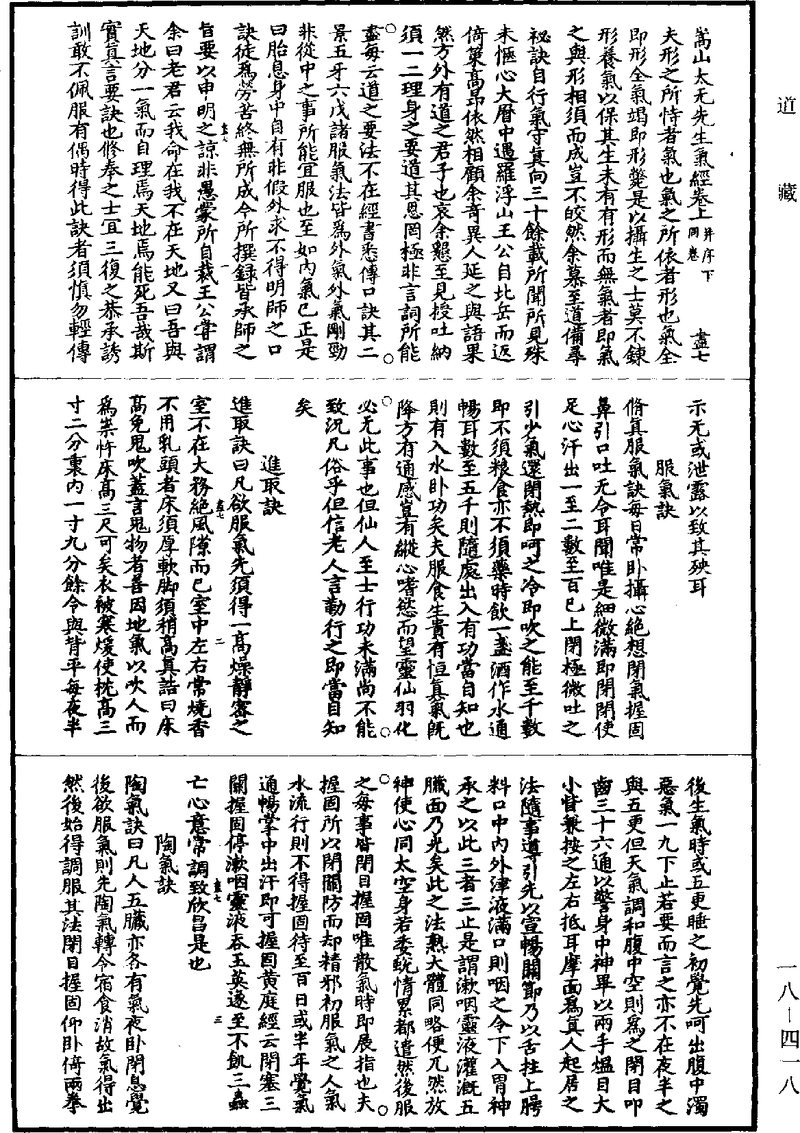 道藏
嵩山太无先生氣經卷上 并序下同卷 盡七
夫形之所恃者氣也氣之所依者形也氣全
即形全氣竭即形斃是以攝生之士莫不鍊
形養氣以保其生未有有形而無氣者即氣
之與形相須而成豈不皎然余慕至道備尋
祕訣自行氣守真向三十餘載所聞所見殊
未愜心大曆中遇羅浮山王公自北岳而返
倚策高昂依然相顧余奇異人延之與語果
然方外有道之君子也哀余懇至見授吐納
須一二理身之要道其恩罔極非言詞所能
盡每云道之要法不在經書悉傳口訣其二
景五牙六戊諸服氣法皆為外氣外氣剛勁
非從中之事所能宜服也至如內氣已正是
曰胎息身中自有非假外求不得明師之口
訣徒為勞苦終無所成今所撰錄皆承師之
旨要以申明之諒非愚蒙所自裁王公嘗謂
余曰老君云我命在我不在天地又曰吾與
天地分一氣而自理焉天地焉能死吾哉斯
實真言要訣也修奉之士宜三復之恭承誘
訓敢不佩服有偶時得此訣者須慎勿輕傳
示无或泄露以致其殃耳
服氣訣
脩真服氣訣每日常卧攝心絕想閉氣握固
鼻引口吐无令耳聞唯是細微滿即閉閉使
足心汗出一至二數至百已上閉極微吐之
引少氣還閉熱即呵之冷即吹之能至千數
即不須粮食亦不須藥時飲一盞酒作水通
暢耳數至五千則隨處出入有功當自知也
則有入水卧功矣夫服食生貴有恒真氣既
降方有通感豈有縱心嗜慾而望靈仙羽化
必无此事也但仙人至士行功未滿尚不能
致況凡俗乎但信老人言勤行之即當自知
矣
進取訣
進取訣曰凡欲服氣先須得一高燥靜密之
室不在大務絕風隙而已室中左右常燒香
盡七 二
不用乳頭者床須厚軟脚須稍高真誥曰床
高免鬼吹蓋言鬼物者善因地氣以吹人而
為祟忤床高三尺可矣衣被寒煖使枕高三
寸二分裏內一寸九分餘令與背平每夜半
後生氣時或五更睡之初覺先呵出腹中濁
惡氣一九下止若要而言之亦不在夜半之
與五更但天氣調和腹中空則為之閉目叩
齒三十六通以警身中神畢以兩手熅目大
小眥兼按之左右抵耳摩面為真人起居之
法隨事導引先以宣暢關節乃以舌拄上腭
料口中內外津液滿口則咽之令下入胃神
承之以此三者三止是謂漱咽靈液灌溉五
臟面乃光矣此之法熟大體同略便兀然放
神使心同太空身若委蛻情累都遣然後服
之每事皆閉目握固唯散氣時即展指也夫
握固所以閉關防而却精邪初服氣之人氣
水流行則不得握固待至百日或半年覺氣
通暢掌中出汗即可握固黃庭經云閉塞三
關握固停漱咽靈液吞玉英遂至不飢三蟲
盡七 三
亡心意常調致欣昌是也
陶氣訣
陶氣訣曰凡人五臟亦各有氣夜卧閉息覺
後欲服氣則先陶氣轉令宿食消故氣得出
然後始得調服其法閉目握固仰卧倚兩拳
一八—四一八